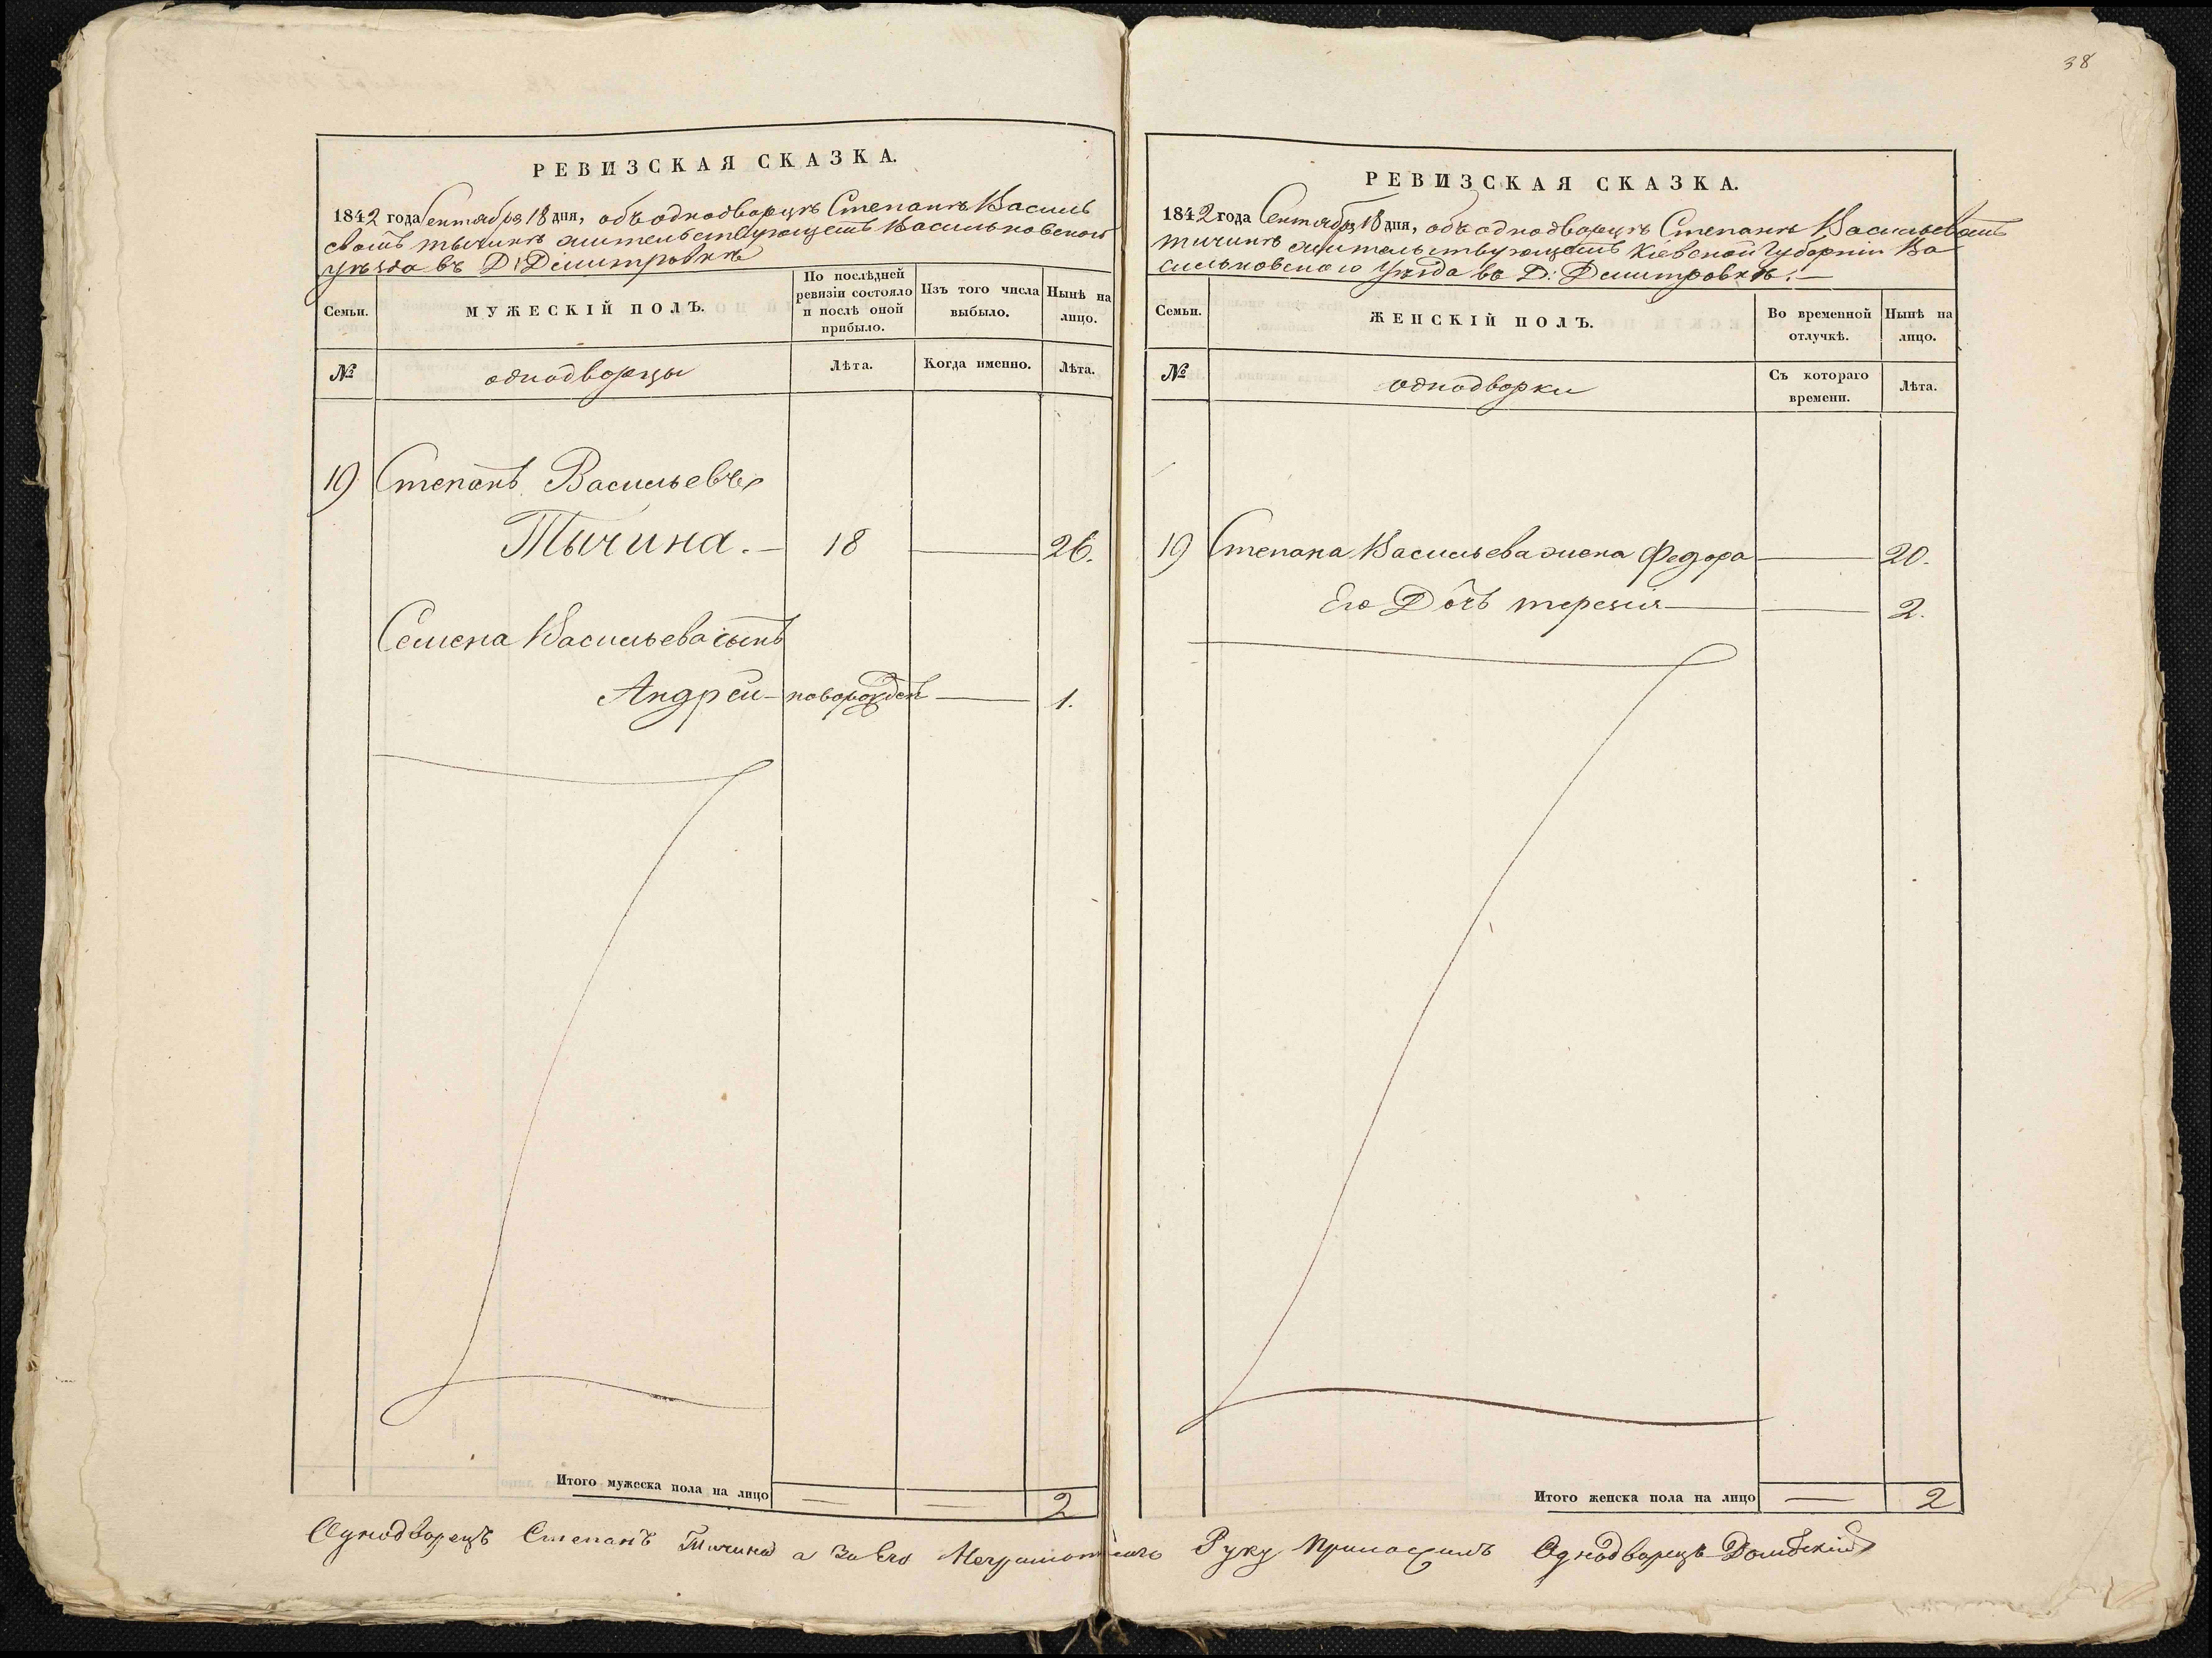 38
РЕВИЗСКАЯ СКАЗКА.
1842 года Сентября 18 дня, объ однодворцѣ Степанѣ Василь
евомъ тычинѣ жительствующемъ Васильковского
уѣзда въ Д: Демитровкѣ
Семьи.
МУЖЕСКІЙ ПОЛЪ.
По послѣдней
ревизіи состояло
и послѣ оной
прибыло.
Изъ того числа
выбыло.
Нынѣ на
лицо.
№
однодворцы
Лѣта.
Когда именно.
Лѣта.
19 Степанъ Васильевъ
Тычина. — 18 — 26.
Семена Васильева сынъ
Андрей — новорожден — 1.
Итого мужеска пола на лицо — — 2
РЕВИЗСКАЯ СКАЗКА.
1842 года Сентября 18 дня, объ однодворцѣ Степанѣ Васильевомъ
тичинѣ жительствующемъ Кіевской Губерніи Ва
сильковского уѣзда въ Д: Демитровкѣ. —
Семьи.
ЖЕНСКІЙ ПОЛЪ.
Во временной
отлучкѣ.
Нынѣ на
лицо.
№
однодворки
Съ котораго
времени.
Лѣта.
19 Степана Васильева жена Федора — 20.
Его Дочь терезия — — 2.
Итого женска пола на лицо — 2
Однодворецъ Степанъ Тичина а За Его Неграмотного Руку Приложилъ Однодворецъ Домбскій